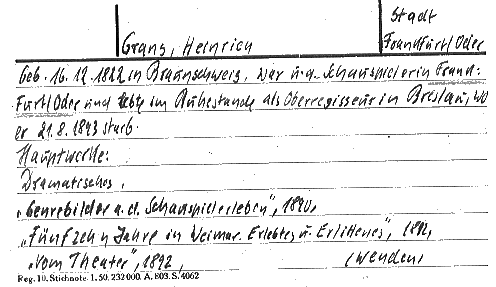 Stadt
Grans, Heinrich Frankfurt/Oder
Geb. 16.12.1822 in Braunschweig, war u.a. Schauspieler in Frank-
furt/Oder und lebte im Ruhestande als Oberregisseur in Breslau, wo
er 21.8.1893 starb.
Hauptwerke:
Dramatisches,
„Genrebilder a.d. Schauspielerleben", 1890,
„Fünfzehn Jahre in Weimar. Erlebtes u. Erlittenes",
„Vom Theater", 1892, (wenden)
Reg. 10. Stichnote. 1. 50. 232000. A. 803. S. 4062